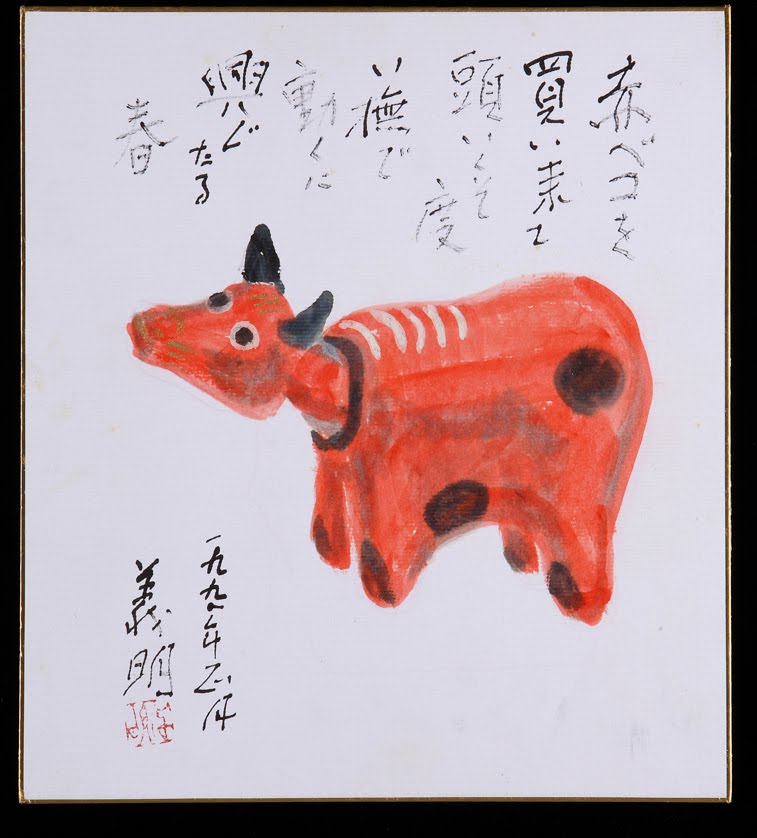 赤ベコを
買い来て
頭いくそ度
い撫で
動くに
興じたる
春
一九九 年正月
義明